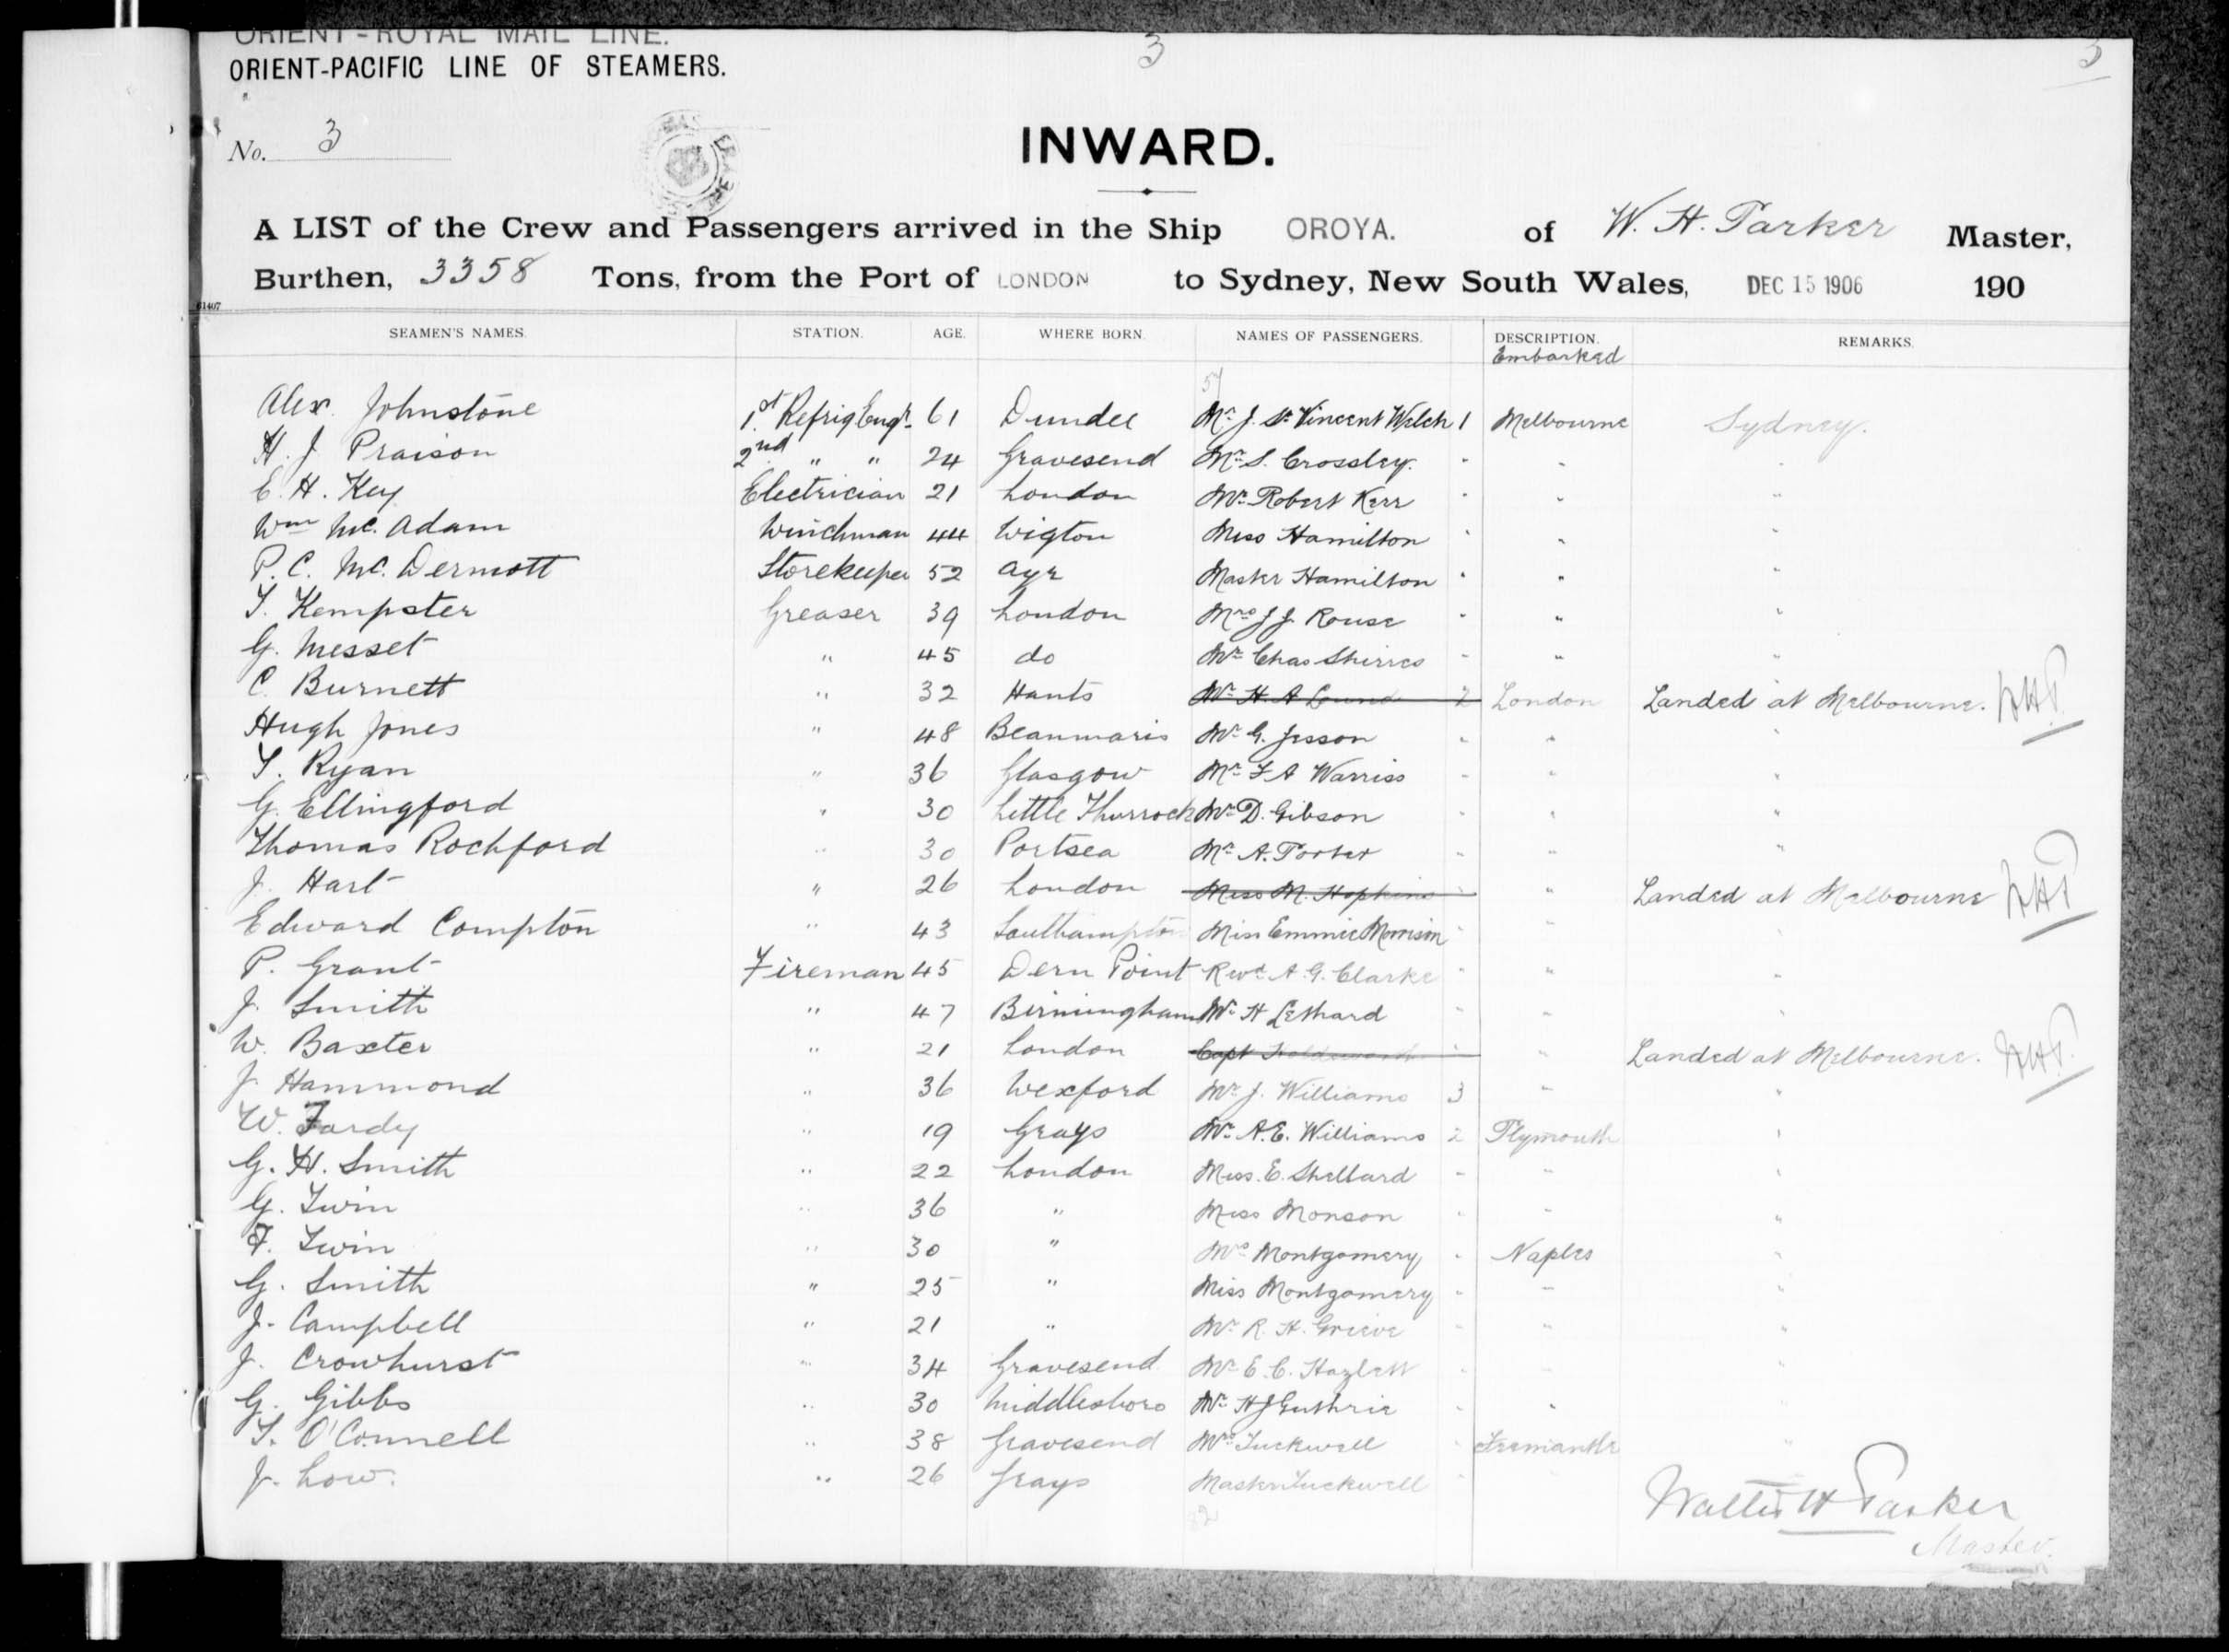 ORIENT-ROYAL MAIL LINE.
ORIENT-PACIFIC LINE OF STEAMERS.
3
3
No. 3
INWARD.
A LIST of the Crew and Passengers arrived in the Ship OROYA. of W. H. Parker Master,
Burthen, 3358 Tons, from the Port of LONDON to Sydney, New South Wales, DEC 15 1906 190
61407
SEAMEN'S NAMES. STATION. AGE. WHERE BORN. NAMES OF PASSENGERS. DESCRIPTION. REMARKS.
Embarked
Alex. Johnstone 1st Refrig Engr. 61 Dundee Mr. J. St. Vincent Welch 1 Melbourne Sydney.
H. J. Praison 2nd " " 24 Gravesend Mr. S. Crossley. " " "
E. H. Key Electrician 21 London Mr. Robert Kerr " " "
Wm Mc. Adam Winchman 44 Wigton Miss Hamilton " " "
P. C. Mc. Dermott Storekeeper 52 Ayr Master Hamilton " " "
T. Kempster Greaser 39 London Mrs J J. Rouse " " "
G. Messet " 45 do Mr. Chas Shirres " " "
C. Burnett " 32 Hants Mr. H. A Lound 2 London Landed at Melbourne. WHP
Hugh Jones " 48 Beaumaris Mr. G. Jesson " " "
T. Ryan " 36 Glasgow Mr. F A Warriss " " "
G. Ellingford " 30 Little Thurrock Mr. D. Gibson " " "
Thomas Rochford " 30 Portsea Mr. A. Porter " " "
J. Hart " 26 London Miss M. Hopkins " " Landed at Melbourne WHP
Edward Compton " 43 Southampton Miss Emmie Morrison " " "
P. Grant Fireman 45 Dern Point Revd. A. G. Clarke " " "
J. Smith " 47 Birmingham Mr. H Lethard " " "
W. Baxter " 21 London Capt Holdsworth " " Landed at Melbourne. WHP
J. Hammond " 36 Wexford Mr. J. Williams 3 " "
W. Fardy " 19 Grays Mr. A. E. Williams 2 Plymouth "
G. H. Smith " 22 London Miss. E. Shellard " " "
G. Twin " 36 " Miss Monson " " "
F. Twin " 30 " Mrs Montgomery " Naples "
G. Smith " 25 " Miss Montgomery " " "
J. Campbell " 21 " Mr. R. H. Grieve " " "
J. Crowhurst " 34 Gravesend Mr. E. C. Hazlett " " "
G. Gibbs " 30 Middlesboro Mr. H J Guthrie " " "
T. O'Connell " 38 Gravesend Mrs Tuckwell " Fremantle "
J. Low. " 26 Grays Master Tuckwell "
Walter H Parker
Master.